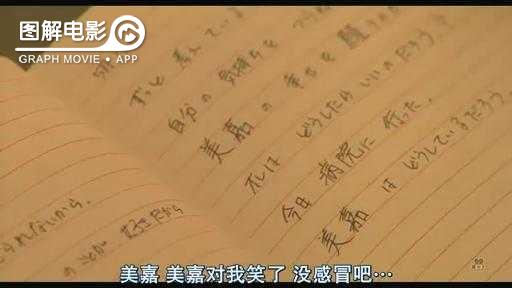 图解电影
GRAPH MOVIE • APP
ずっと考えている
自分の気持ちを
美嘉の幸せを願うため
オレはどうしたらいいのだろう?
今日病院に行った。
美嘉はどうしているだろう。
られないから。
好きだから
美嘉 美嘉对我笑了 没感冒吧…